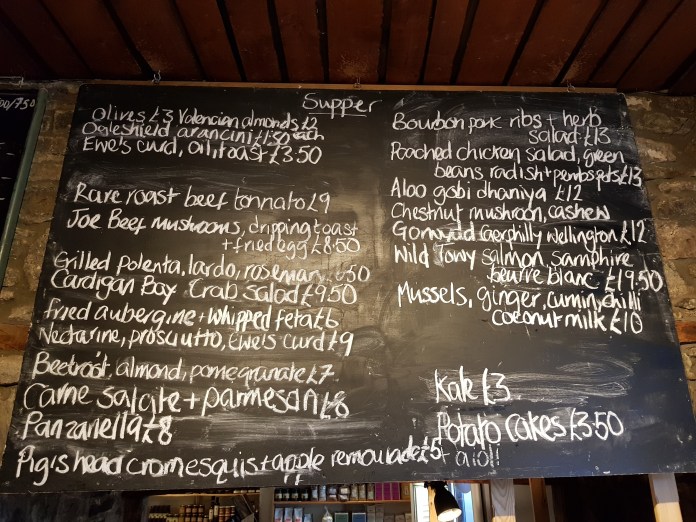 00/750
Supper
Olives £3 Valencian almonds £2
Ogleshield arancini £1.50 each
Ewe's curd, Oil, toast £3.50
Rare roast beef tonnato £9
Joe Beef mushrooms, dripping toast
+ fried egg £8.50
Grilled polenta, lardo, 50
Cardigan Bay Crab salad £9.50
fried aubergine + whipped feta £6
Nectarine, prosciutto, Ewe's curd £9
Beetroot, almond, pomegranate £7
Carne salate + parmesan £8
Panzanella £8
Pig's head cromesquis + apple remoulade £5
Bourbon pork ribs + herb
salad £13
Poached chicken salad, green
beans radish + pembs pots £13
Aloo gobi dhaniya £12
Chestnut mushroom, cashew
Gorwydd Caerphilly wellington £12
Wild Towy salmon, samphire
beurre blanc £19.50
Mussels, ginger, cumin, chilli
coconut milk £10
Kale £3
Potato cakes £3.50
+ aioli